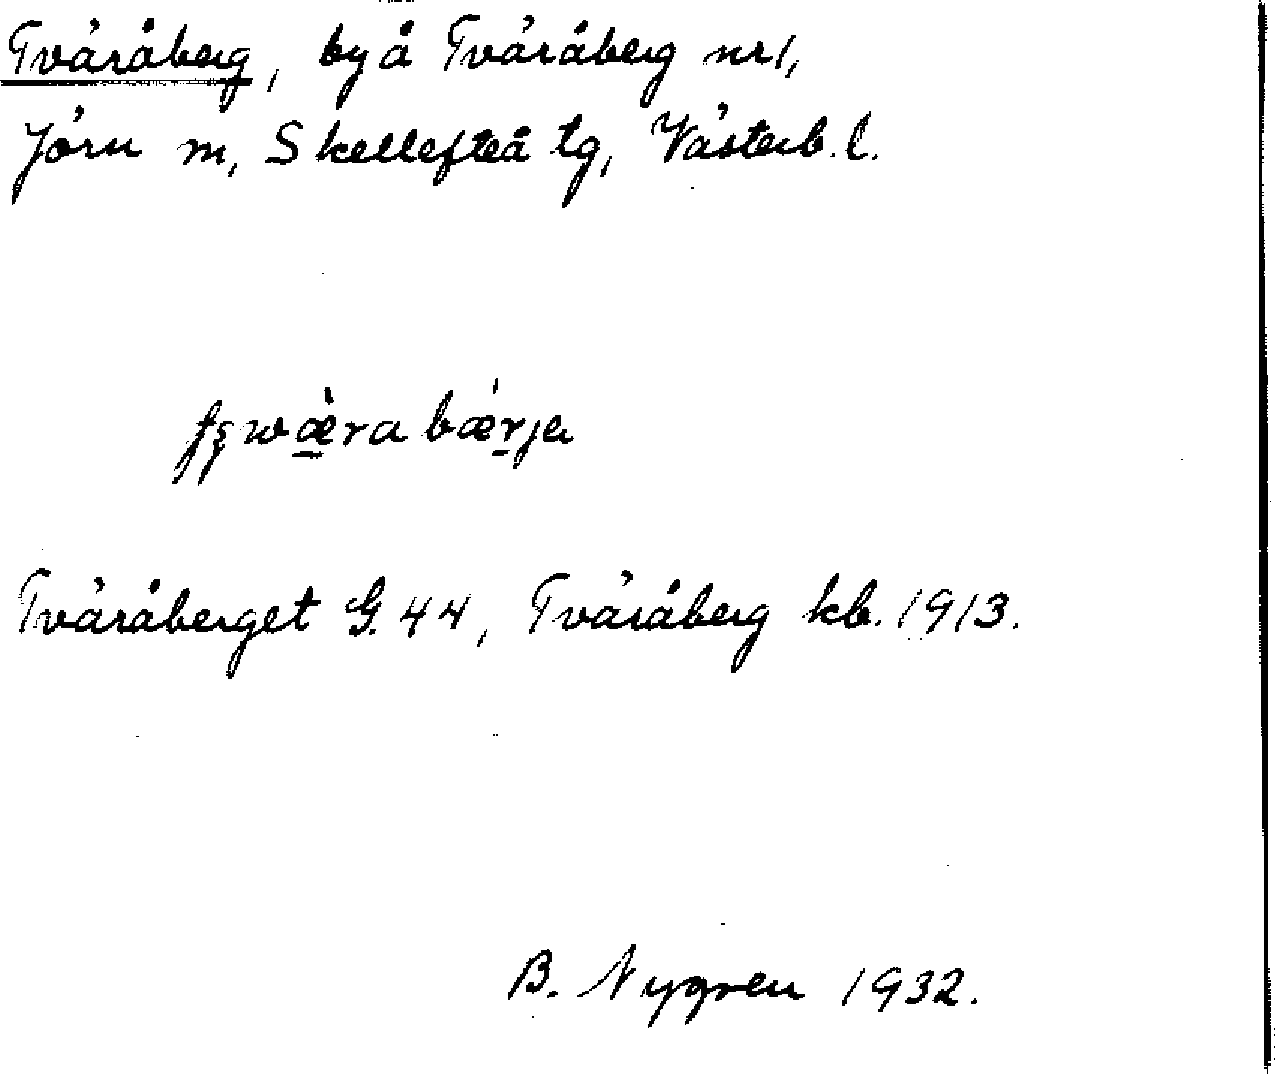 Tväråberg, by å Tväråberg nr 1,
Jörn m, Skellefteå tg, Västerb. l.
bærja
Tväråberget G. 44, Tväråberg kb. 1913.
B. Nygren 1932.